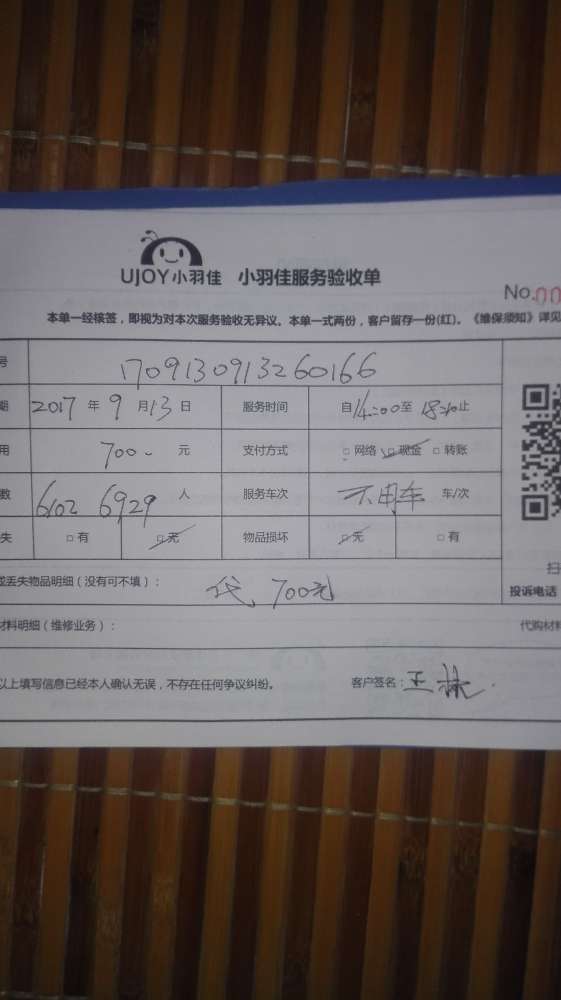 UJOY小羽佳 小羽佳服务验收单
No.00
本单一经核签，即视为对本次服务验收无异议。本单一式两份，客户留存一份(红)。《维保须知》详见
号 1709130913260166
期 2017 年 9 月 13 日 服务时间 自 14:00 至 18:00 止
用 700- 元 支付方式 □网络 □现金 □转账
数 6102 6929 人 服务车次 不用车 车/次
失 □有 □无 物品损坏 □无 □有
或丢失物品明细（没有可不填）： 代 700元
扫
投诉电话
材料明细（维修业务）： 代购材料
以上填写信息已经本人确认无误，不存在任何争议纠纷。 客户签名：王林